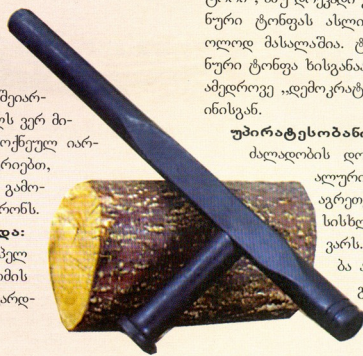 ნური ტონფას ასლი
ოლოდ მასალაშია. ტ
ნური ტონფა ხისგანაა
ამედროვე „დემოკრატ
ინისგან.
უპირატესობანი
ძალადობის დო
ალური
აგრეთ
სისხლ
ვარს.
ბა
შეიარ-
ლს ვერ მი-
ოქნეულ იარ-
რიებთ,
გამო-
რონს.
და:
პელ
ომის
არდ-